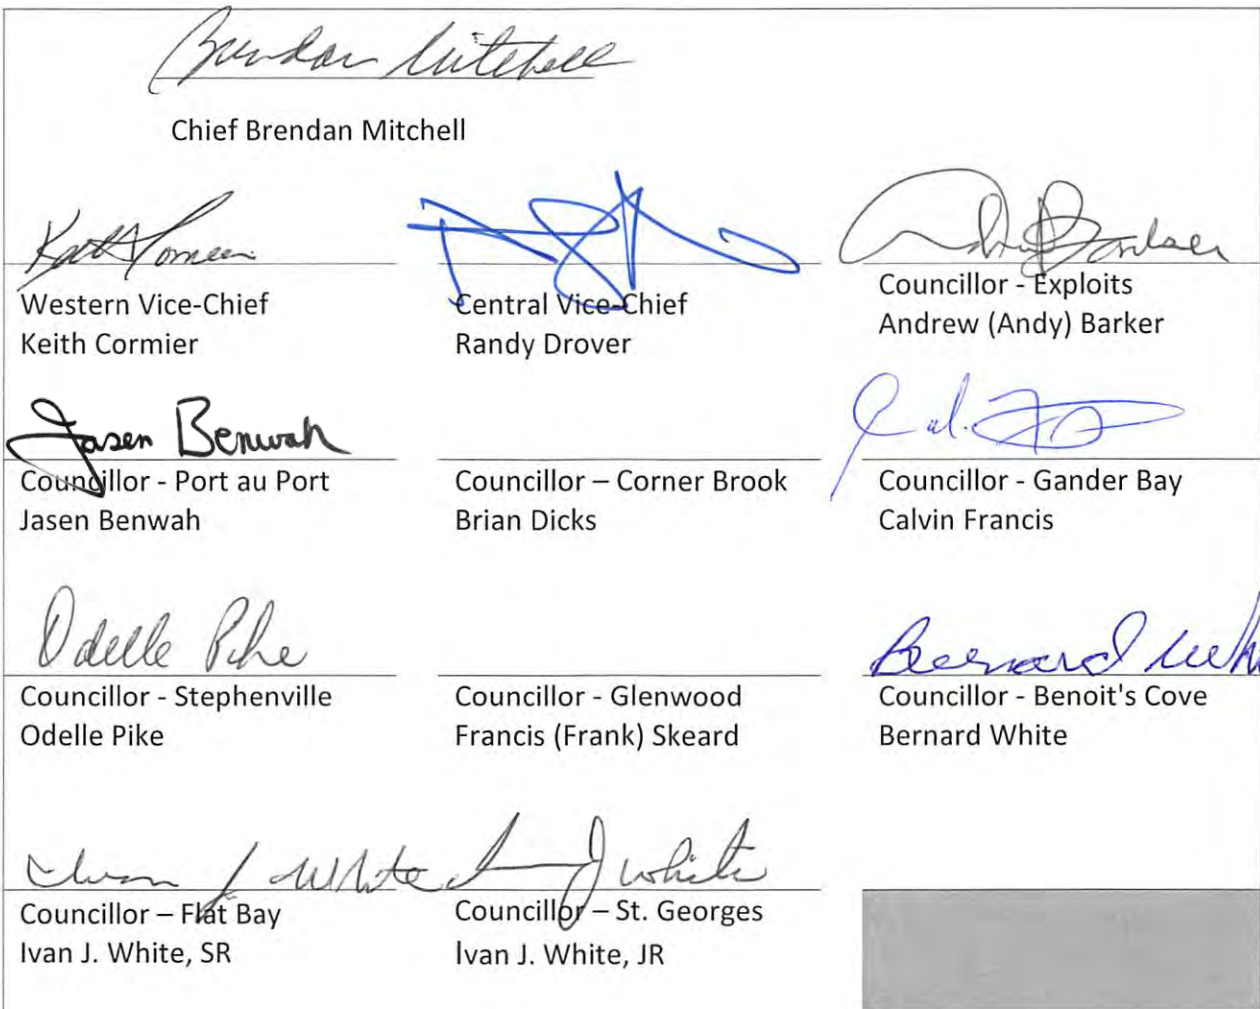 Brendan Mitchell
Chief Brendan Mitchell
Keith Cormier
Western Vice-Chief
Keith Cormier
Central Vice-Chief
Randy Drover
Andrew Barker
Councillor - Exploits
Andrew (Andy) Barker
Jasen Benwah
Councillor - Port au Port
Jasen Benwah
Councillor – Corner Brook
Brian Dicks
Councillor - Gander Bay
Calvin Francis
Odelle Pike
Councillor - Stephenville
Odelle Pike
Councillor - Glenwood
Francis (Frank) Skeard
Bernard Whi
Councillor - Benoit's Cove
Bernard White
Ivan J White
Councillor – Flat Bay
Ivan J. White, SR
J White
Councillor – St. Georges
Ivan J. White, JR